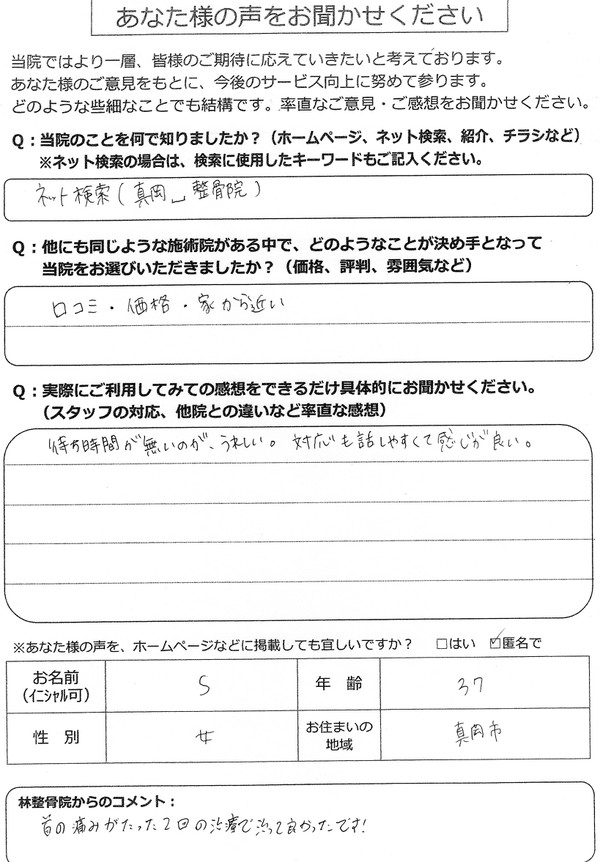 あなた様の声をお聞かせください
当院ではより一層、皆様のご期待に応えていきたいと考えております。
あなた様のご意見をもとに、今後のサービス向上に努めて参ります。
どのような些細なことでも結構です。率直なご意見・ご感想をお聞かせください。
Q：当院のことを何で知りましたか？（ホームページ、ネット検索、紹介、チラシなど）
※ネット検索の場合は、検索に使用したキーワードもご記入ください。
ネット検索（真岡␣整骨院）
Q：他にも同じような施術院がある中で、どのようなことが決め手となって
当院をお選びいただきましたか？（価格、評判、雰囲気など）
口コミ・価格・家から近い
Q：実際にご利用してみての感想をできるだけ具体的にお聞かせください。
（スタッフの対応、他院との違いなど率直な感想）
待ち時間が無いのが、うれしい。対応も話しやすくて感じが良い。
※あなた様の声を、ホームページなどに掲載しても宜しいですか？ □はい ☑匿名で
お名前 S 年齢 37
（ｲﾆｼｬﾙ可）
性別 女 お住まいの 真岡市
地域
林整骨院からのコメント：
首の痛みがたった2回の治療で治って良かったです!